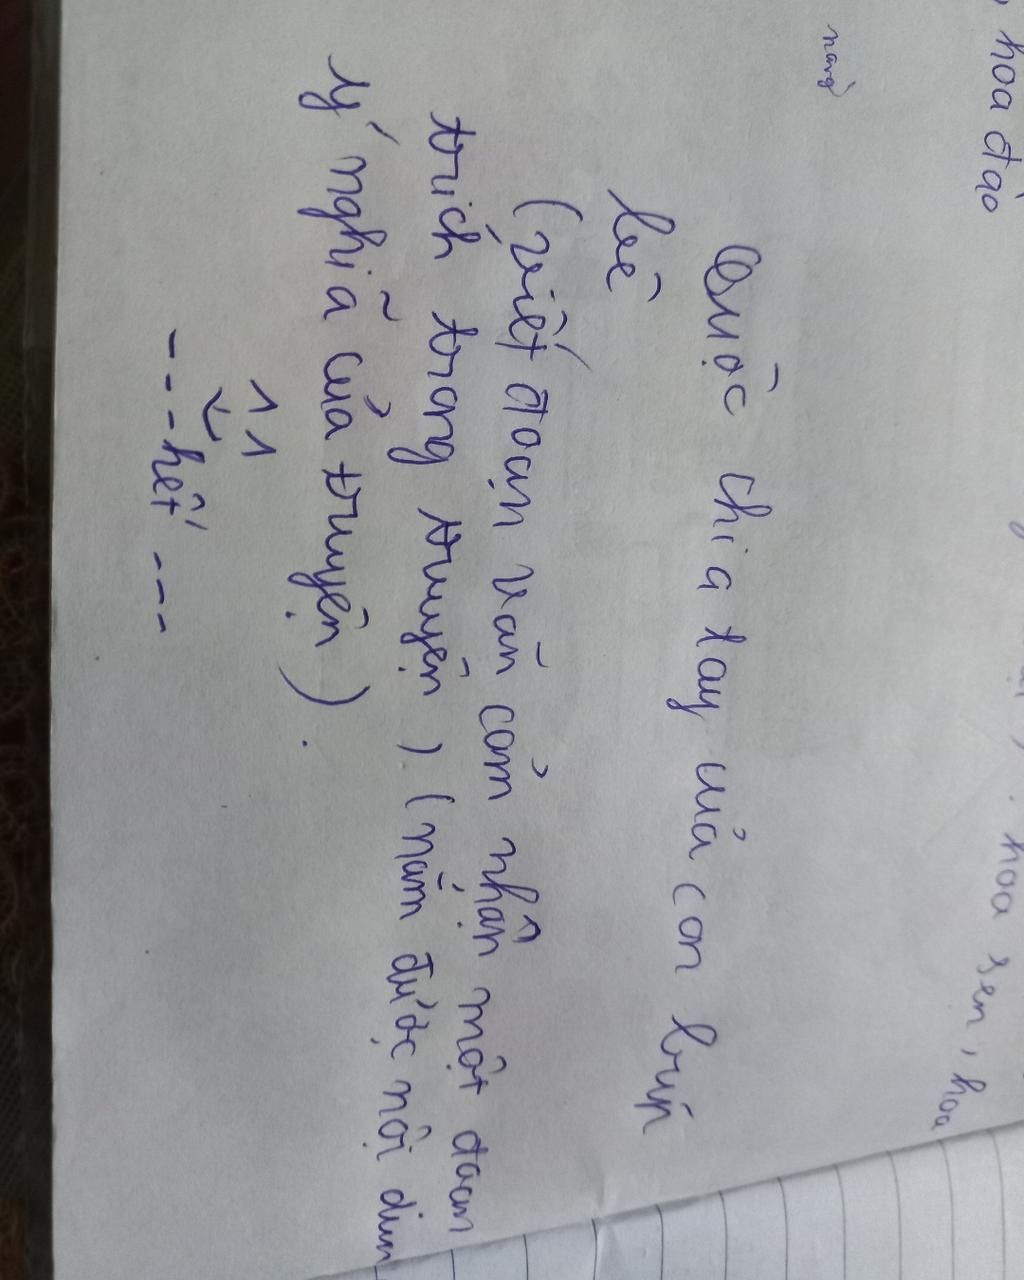 hoa đào
hoa sen, hoa
nang
Cuộc chia tay của con búp
bê
(viết đoạn văn cảm nhận một đoạn
trích trong truyện) (nắm được nội dun
ý nghĩa của truyện).
---hết---